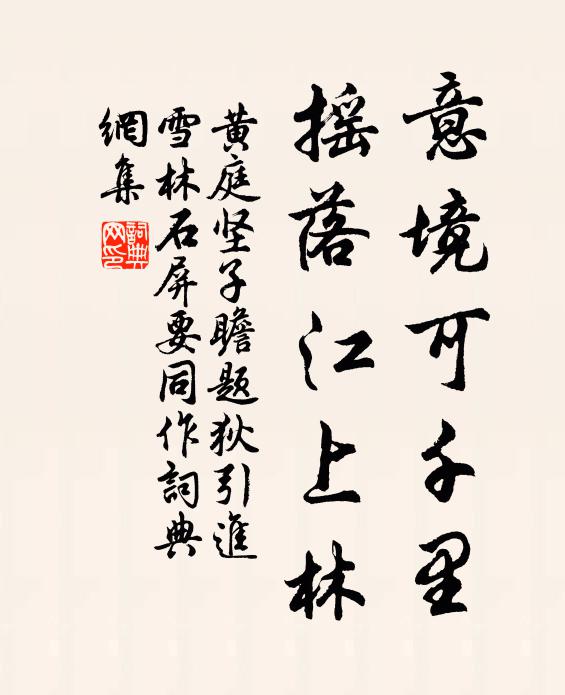 意境可千里
摇落江上林
黄庭坚子瞻题狄引進
雪林石屏要同作詞典
網集
詞典
网印